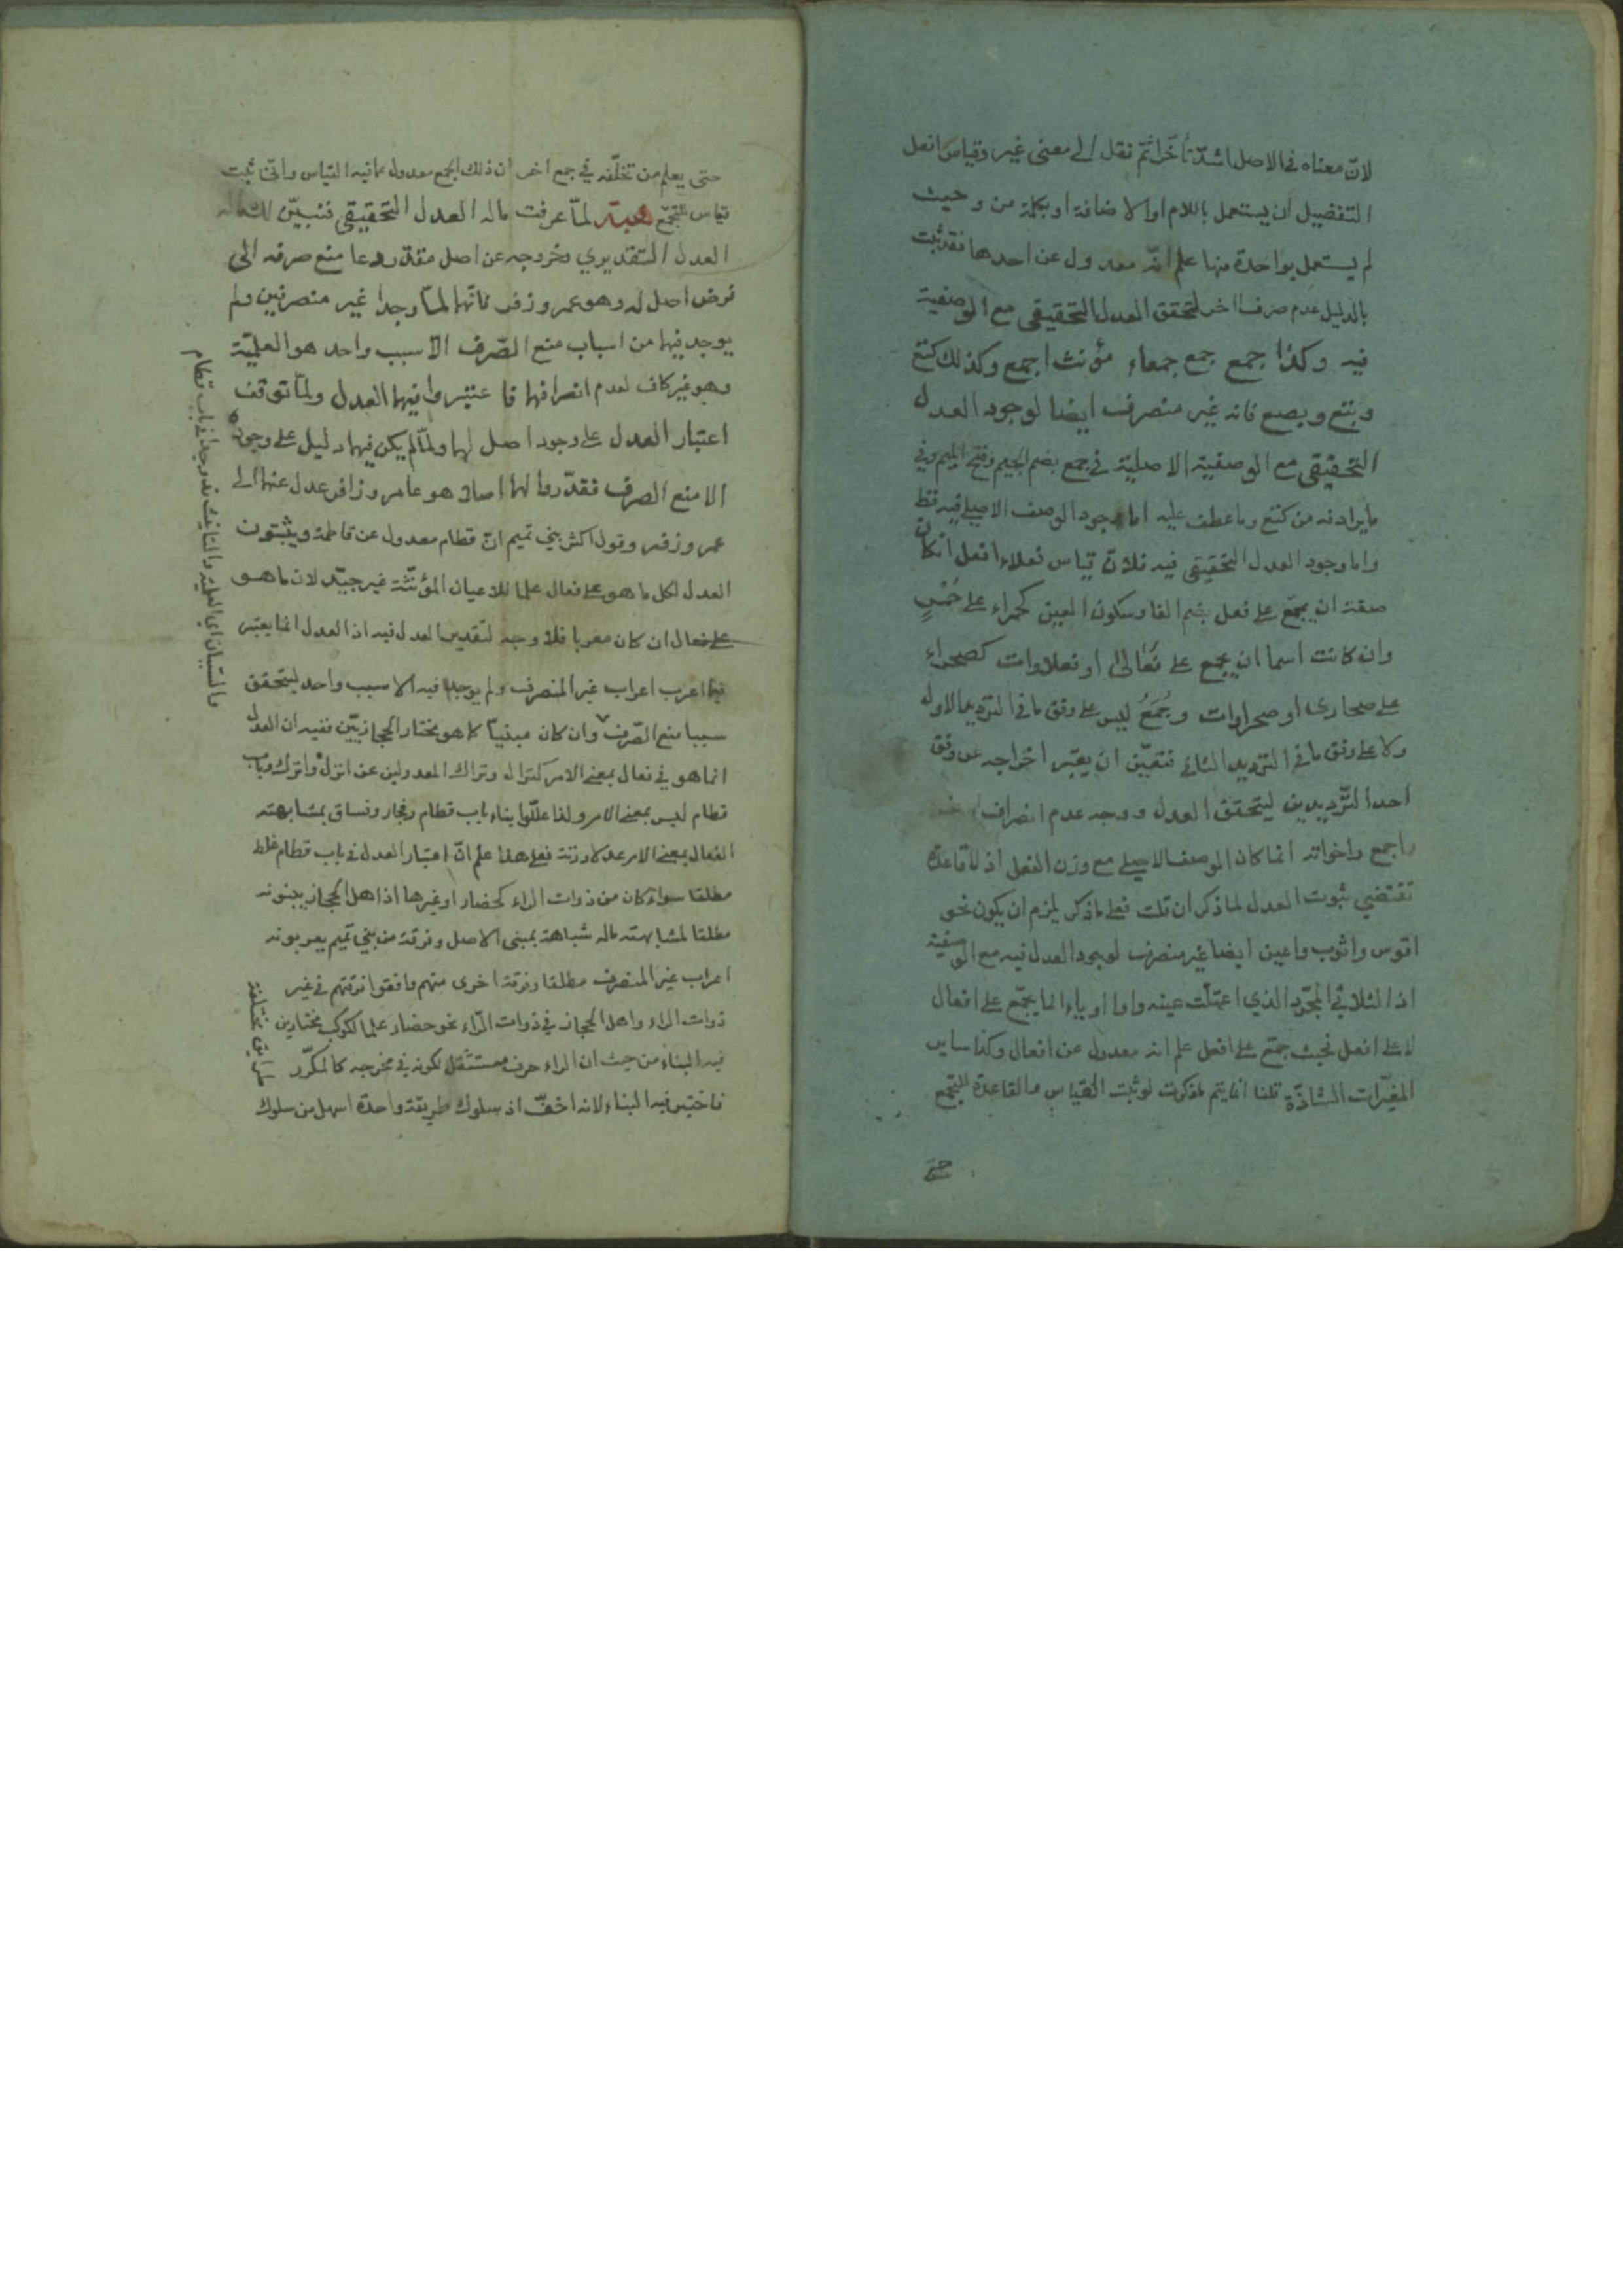 لانّ معناه في الاصل اشدّ تأخّرا ثمّ نقل الى معنى غير وقياس افعل
التفضيل ان يستعمل باللام او الاضافة او بكلمة من وحيث
لم يستعمل بواحدة منها علم انّه معدول عن احدها فقد ثبت
بالدليل عدم صرف اخر لتحقق العدل التحقيقي مع الوصفية
فيه وكذا جمع جمع جمعاء مؤنث اجمع وكذلك كتع
وبتع وبصع فانه غير منصرف ايضا لوجود العدل
التحقيقي مع الوصفية الاصلية في جمع بضم الجيم وفتح الميم وفي
ما يرادفه من كتع وما عطف عليه اما وجود الوصف الاصلي فيه فقط
واما وجود العدل التحقيقي فيه فلانّ قياس فعلاء افعل ان كان
صفة ان يجمع على فعل بضم الفا وسكون العين كحمراء على حُمْرٍ
وان كانت اسما ان يجمع على فَعَالىٰ او فعلاوات كصحراء
على صحارى او صحراوات وجُمَعُ ليس على وفق ما في الترديد الاول
ولا على وفق ما في الترديد الثاني فتعيّن ان يعتبر اخراجه عن وفق
احد الترّديدين ليتحقق العدل ووجه عدم انصراف
اجمع واخواته انما كان الوصف الاصلي مع وزن الفعل اذ لا قاعدة
تقتضي ثبوت العدل لما ذكر ان قلت فعلى ما ذكر يلزم ان يكون نحو
اقوس واثوب واعين ايضا غير منصرف لوجود العدل فيه مع الوصفية
اذ الثلاثي المجرّد الذي اعتلّت عينه واوا او ياء انما يجمع على افعال
لا على افعل فحيث جمع على افعل علم انه معدول عن افعال وكذا ساير
المغيّرات الشاذّة قلنا انما يتم لو ثبت القياس والقاعدة للجمع
حتى
حتى يعلم من تخلّفه في جمع اخر ان ذلك الجمع معدول عما فيه القياس وانّى ثبت
قياس للجمع لمّا عرفت ماله العدل التحقيقي فنبيّن لك ماله
العدل التقديري وخروجه عن اصل مقدّر دعا منع صرفه الى
فرض اصل له وهو عمر وزفر فانّهما لمّا وجدا غير منصرفين ولم
يوجد فيهما من اسباب منع الصّرف الّا سبب واحد هو العلميّة
وهو غير كاف لعدم انصرافها فاعتبروا فيهما العدل ولمّا توقف
اعتبار العدل على وجود اصل لهما ولمّا لم يكن فيهما دليل على وجوده
الا منع الصرف فقدّروا لهما اصلا هو عامر وزافر عدل عنهما الى
عمر وزفر وقول اكثر بني تميم انّ قطام معدول عن قاطمة ويثبتون
العدل لكل ما هو على فعال علما للاعيان المؤنّثة غير جيّد لان ما هو
على فعال ان كان معربا فلا وجه لتقدير العدل فيه اذ العدل انما يعتبر
فيما اعرب اعراب غير المنصرف ولم يوجد فيه الا سبب واحد ليتحقق
سببا منع الصّرف وان كان مبنيّا كما هو مختار الحجازيّين ففيه ان العدل
انما هو في فعال بمعنى الامر كنزال وتراك المعدولين عن انزل واترك وباب
قطام ليس بمعنى الامر ولذا علّلوا بناء باب قطام وفجار وفساق بمشابهته
الفعال بمعنى الامر عدلا وزنة فعلى هذا علم انّ اعتبار العدل في باب قطام غلط
مطلقا سواء كان من ذوات الراء كحضار او غيرها اذ اهل الحجاز يبنونه
مطلقا لمشابهته ماله شباهة بمبنى الاصل وفرقة من بني تميم يعربونه
اعراب غير المنصرف مطلقا وفرقة اخرى منهم وافقوا فرقتهم في غير
ذوات الراء واهل الحجاز في ذوات الرّاء نحو حضار علما لكوكب مختارين
فيه البناء من حيث ان الراء حرف مستثقل لكونه في مخرجه كالمكرّر
فاختير فيه البناء لانه اخفّ اذ سلوك طريقة واحدة اسهل من سلوك
فالسّببان اي العلمية والتانيث قد وجدا في باب قطام
طرايق مختلفة